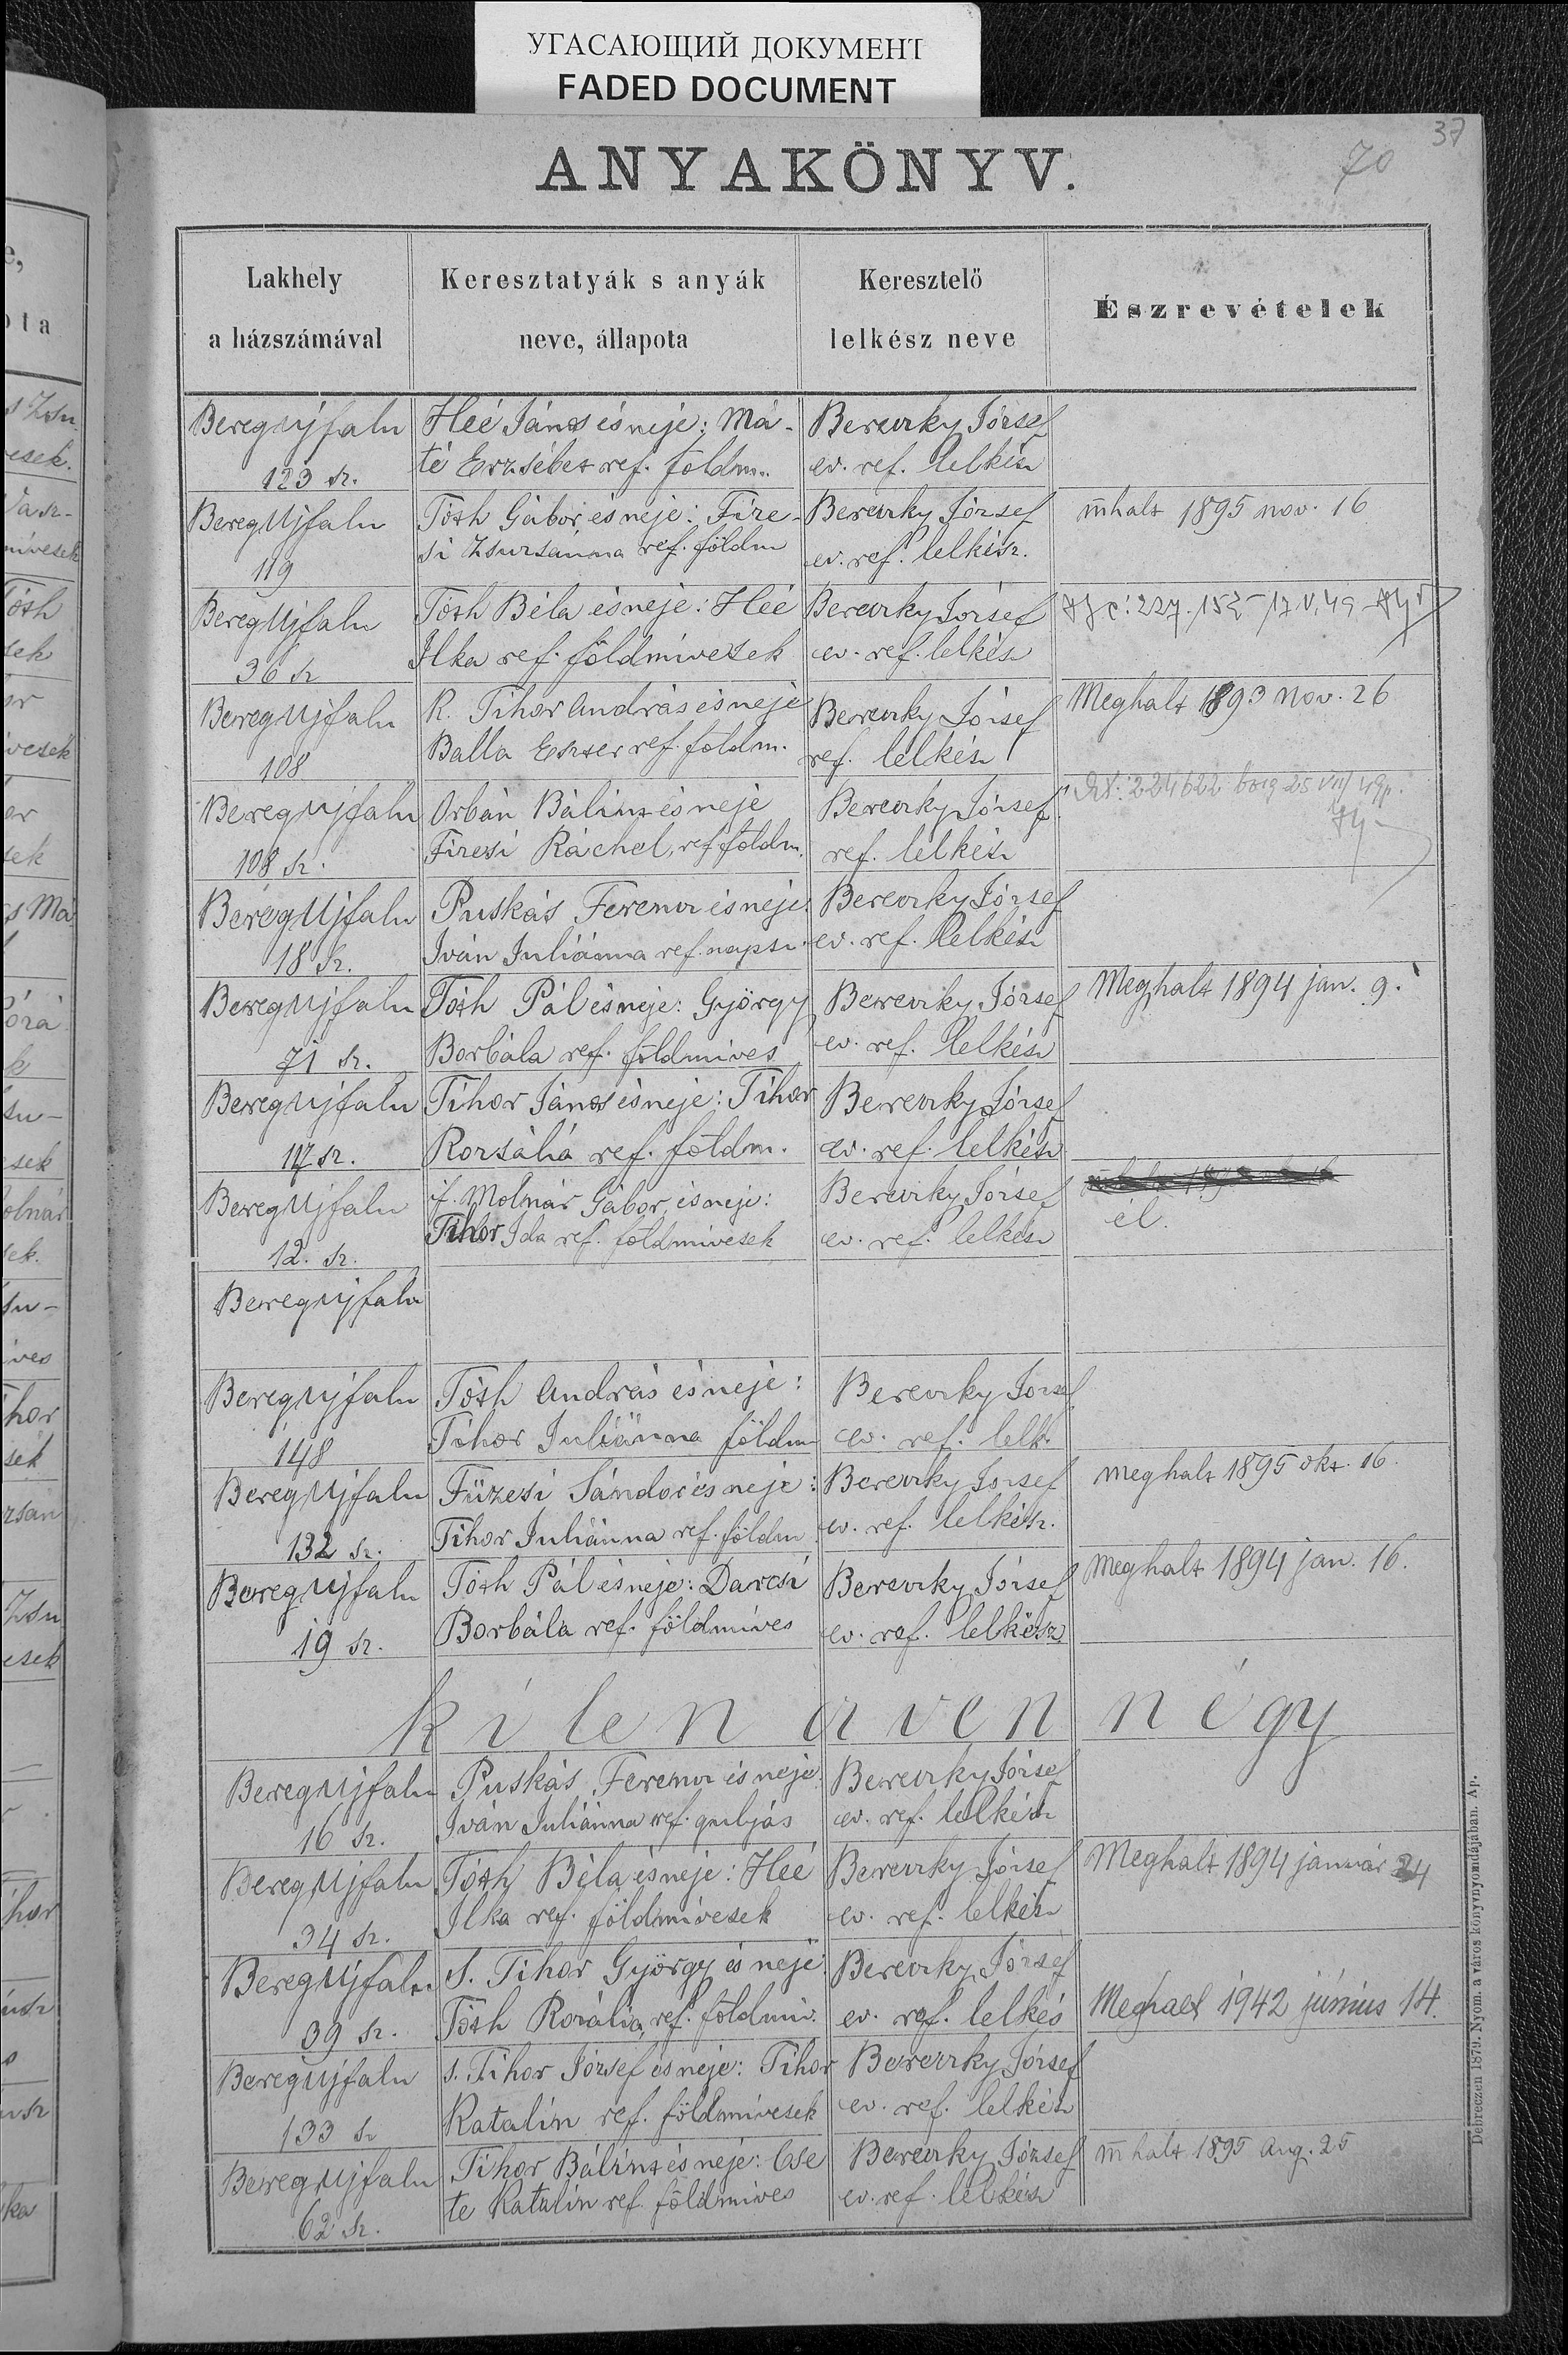 УГАСАЮЩИЙ ДОКУМЕНТ
FADED DOCUMENT
37
70
ANYAKÖNYV.
Lakhely
a házszámával
Keresztatyák s anyák
neve, állapota
Keresztelő
lelkész neve
Észrevételek
BeregUjfalu
123 sz.
Heé János és neje: Má-
té Erzsébet ref. földm.
Bereczky József
ev. ref. lelkész
BeregUjfalu
119
Tóth Gábor és neje: Füze-
si Zsuzsánna ref. földm
Bereczky József
ev. ref. lelkész.
mhalt 1895 nov. 16
BeregUjfalu
36 sz
Tóth Béla és neje: Heé
Ilka ref. földmivesek
Bereczky József
ev. ref. lelkész
BeregUjfalu
108
K. Tihor András és neje
Balla Eszter ref. földm.
Bereczky József
ref. lelkész
Meghalt 1893 nov. 26
BeregUjfalu
108 sz.
Orbán Bálint és neje
Füzesi Ráchel, ref. földm.
Bereczky József
ref. lelkész
BeregUjfalu
18 sz.
Puskás Ferencz és neje:
Iván Juliánna ref. napsz.
Bereczky József
ev. ref. lelkész
BeregUjfalu
71 sz.
Tóth Pál és neje: György
Borbála ref. földmives
Bereczky József
ev. ref. lelkész
Meghalt 1894 jan. 9.
BeregUjfalu
117 sz.
Tihor János és neje: Tihor
Rozsália ref. földm.
Bereczky József
ev. ref. lelkész
BeregUjfalu
12. sz.
if. Molnár Gábor és neje:
Tihor Ida ref. földmivesek
Bereczky József
ev. ref. lelkész
él.
BeregUjfalu
BeregUjfalu
148
Tóth András és neje:
Tihor Juliánna földm
Bereczky József
ev. ref. lelk.
BeregUjfalu
132 sz.
Füzesi Sándor és neje:
Tihor Juliánna ref. földm
Bereczky József
ev. ref. lelkész.
meghalt 1895 okt. 16.
BeregUjfalu
19 sz.
Tóth Pál és neje: Darcsi
Borbála ref. földmíves
Bereczky József
ev. ref. lelkész
Meghalt 1894 jan. 16.
kilenczven négy
BeregUjfalu
16 sz.
Puskás Ferencz és neje:
Iván Juliánna ref. gulyás
Bereczky József
ev. ref. lelkész
BeregUjfalu
34 sz.
Tóth Béla és neje: Heé
Ilka ref. földmivesek
Bereczky József
ev. ref. lelkész
Meghalt 1894 január 24
BeregUjfalu
39 sz.
S. Tihor György és neje:
Tóth Rozália, ref. földmiv.
Bereczky József
ev. ref. lelkés
Meghalt 1942 június 14.
BeregUjfalu
133 sz
s. Tihor József és neje: Tihor
Katalin ref. földmivesek
Bereczky József
ev. ref. lelkész
BeregUjfalu
62 sz.
Tihor Bálint és neje: Cse
te Katalin ref. földmives
Bereczky József
ev. ref. lelkész
mhalt 1895 aug. 25
Debreczen 1879. Nyom. a város könyvnyomdájában. Ap.